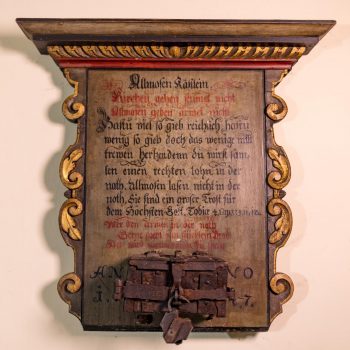 Allmosen Kästlein
Kirchen gehen seumt nicht
Allmosen geben armet nicht
Hastu viel so gieb reichlich, hastu
wenig so gieb doch das wenige mitt
trewen hertzen den du wirst sam,
len einen rechten lohn in der
noth. Allmosen lasen nicht in der
noth. Sie sind ein groser Trost für
dem Höchsten Gott. Tobiæ 4.
Wer den Armen in der noth
ANNO